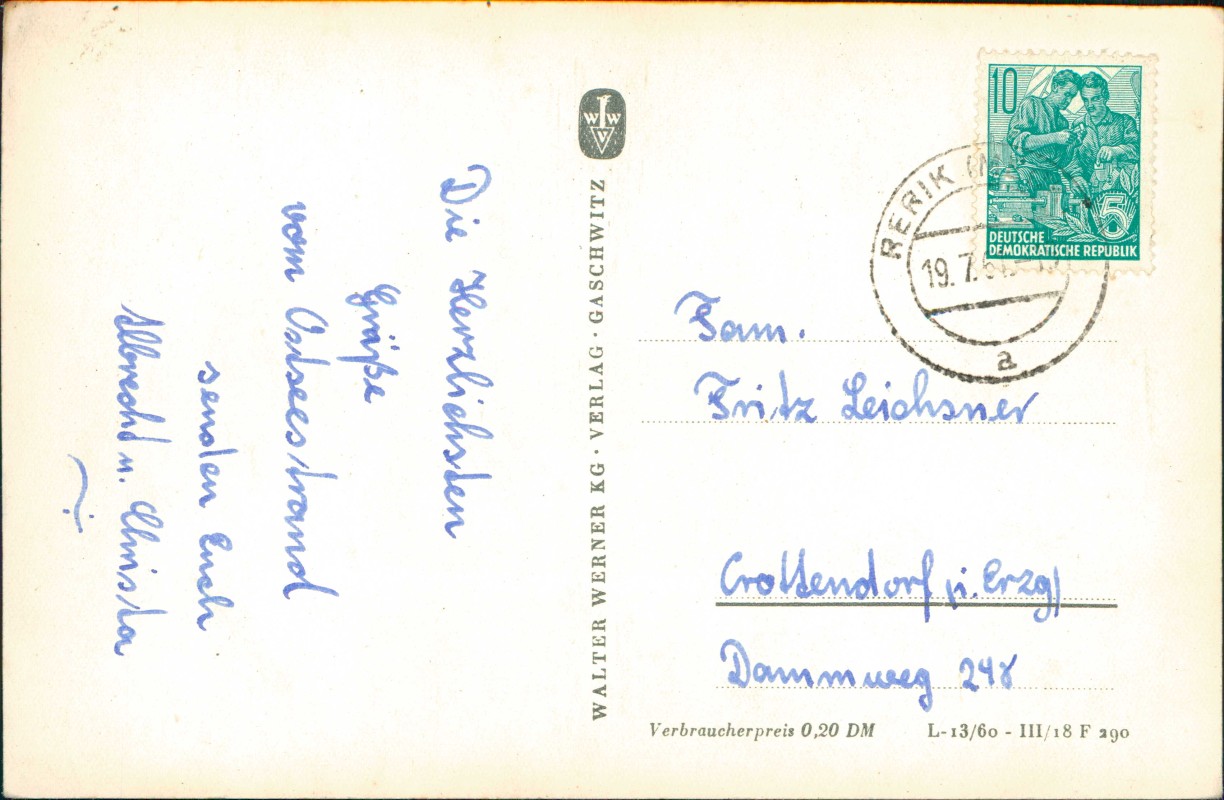 Die Herzlichsten
Grüße
vom Ostseestrand
senden Euch
Albrecht u. Christa
W W V
WALTER WERNER KG · VERLAG · GASCHWITZ
10
5
DEUTSCHE
DEMOKRATISCHE REPUBLIK
RERIK
19. 7.
a
Fam.
Fritz Leichsner
Crottendorf (i. Erzg)
Dammweg
Verbraucherpreis 0,20 DM
L-13/60 - III/18 F 290